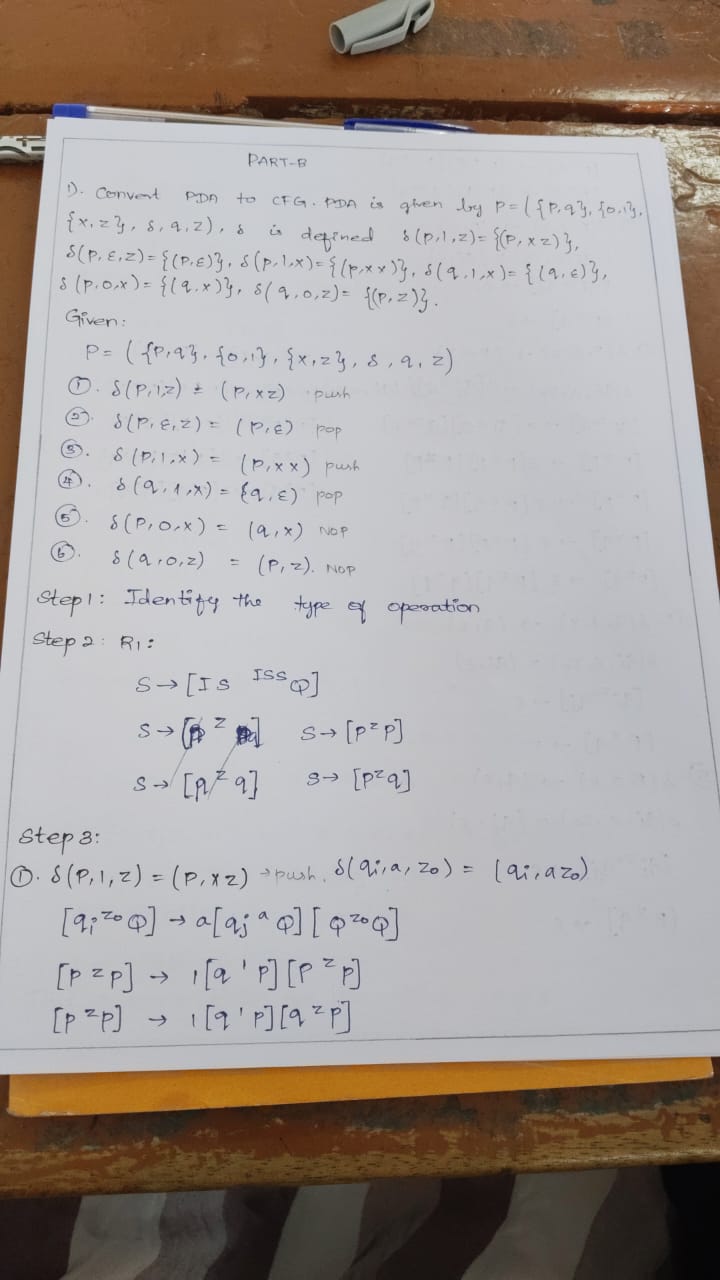 PART-B
1). Convert PDA to CFG. PDA is given by P=({P,q},{0,1},
{x,z}, δ, q, z), δ is defined δ(P,1,z)={(P,xz)},
δ(P,ε,z)={(P,ε)}, δ(P,1,x)={(P,xx)}, δ(q,1,x)={(q,ε)},
δ(P,0,x)={(q,x)}, δ(q,0,z)={(P,z)}.
Given:
P= ({P,q}, {0,1}, {x,z}, δ, q, z)
①. δ(P,1,z) = (P,xz) push
②. δ(P,ε,z) = (P,ε) pop
③. δ(P,1,x) = (P,xx) push
④. δ(q,1,x) = {q,ε) pop
⑤. δ(P,0,x) = (q,x) NOP
⑥. δ(q,0,z) = (P,z). NOP
Step1: Identify the type of operation
Step 2: R1:
S→[IS ISS Q]
S→[ z ] S→[p z p]
S→[p z q] S→ [p z q]
Step 3:
①. δ(P,1,z) = (P,xz) →push, δ(qi,a,z0) = (qi,az0)
[qi z0 Q] → a[qj a Q][Q z0 Q]
[p z p] → 1[q 1 p][p z p]
[p z p] → 1[q 1 p][q z p]